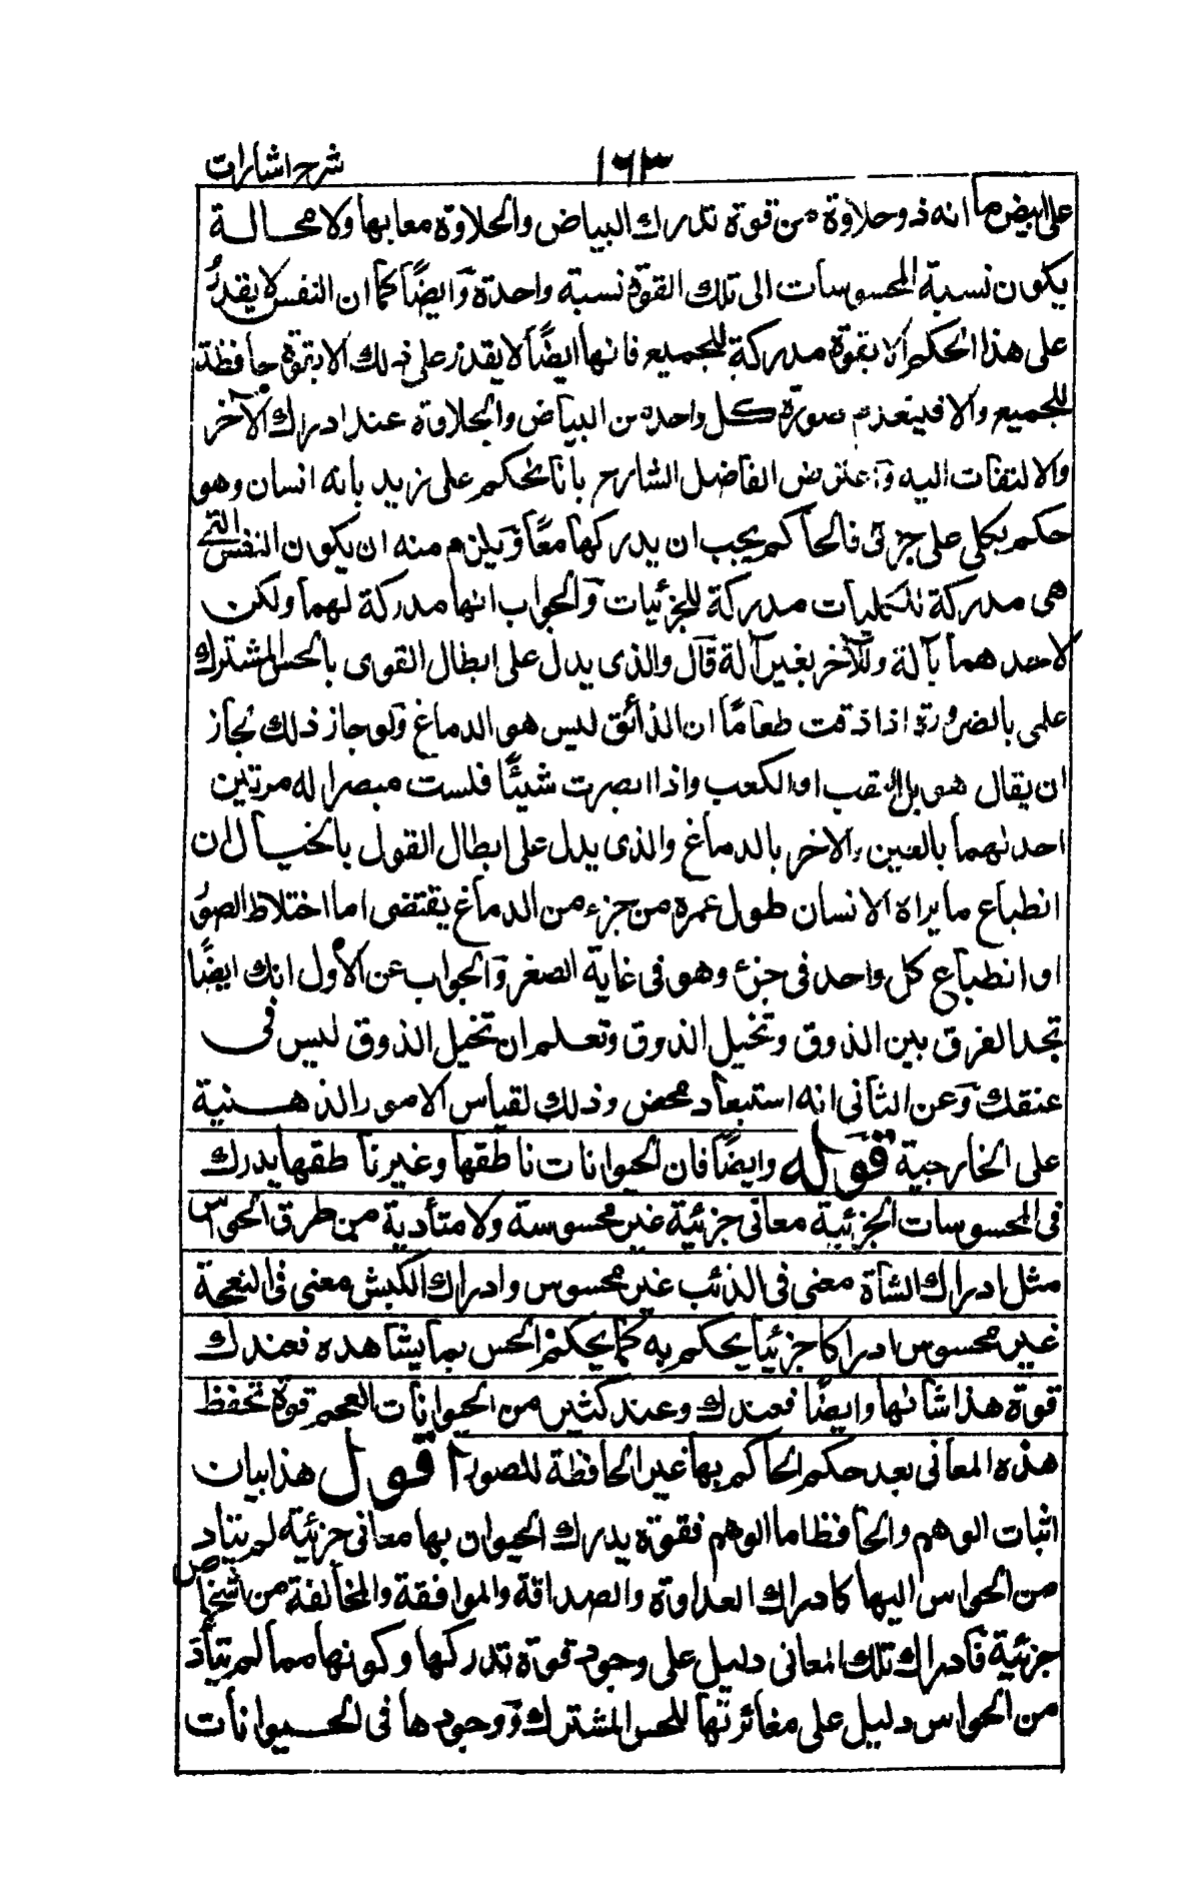 ١٦٣ شرح اشارات
على ابيض ما انه ذو حلاوة من قوة تدرك البياض والحلاوة معا بها ولا محالة
يكون نسبة المحسوسات الى تلك القوة نسبة واحدة وايضًا كما ان النفس لا يقدرُ
على هذا الحكم الا بقوة مدركة للجميع فانها ايضًا لا يقدر على ذلك الا بقوة حافظة
للجميع والا فينعدم صورة كل واحد من البياض والحلاوة عند ادراك الآخر
والالتفات اليه واعترض الفاضل الشارح بانا نحكم على زيد بانه انسان وهو
حكم بكلى على جزئى فالحاكم يجب ان يدركهما معًا ويلزم منه ان يكون النفس التى
هى مدركة للكليات مدركة للجزئيات والجواب انها مدركة لهما ولكن
لاحدهما بآلة وللآخر بغير آلة قال والذى يدل على ابطال القوى بالحس المشترك
علمى بالضرورة اذا ذقت طعامًا ان الذائق ليس هو الدماغ ولو جاز ذلك لجاز
ان يقال هو بل العقب او الكعب واذا ابصرت شيئًا فلست مبصرا له مرتين
احدٰهما بالعين والاخر بالدماغ والذى يدل على ابطال القول بالخيال ان
انطباع ما يراه الانسان طول عمره من جزء من الدماغ يقتضى اما اختلاط الصوُ
او انطباع كل واحد فى جزء وهو فى غاية الصغر والجواب عن الاول انك ايضًا
تجد الفرق بين الذوق وتخيل الذوق وتعلم ان تخيل الذوق ليس فى
عنقك وعن الثانى انه استبعاد محض وذلك لقياس الامور الذهنية
على الخارجية قوله وايضًا فان الحيوانات ناطقها وغير ناطقها يدرك
فى المحسوسات الجزئية معانى جزئية غير محسوسة ولا متأدية من طرق الحواس
مثل ادراك الشاة معنى فى الذئب غير محسوس وادراك الكبش معنى فى النعجة
غير محسوس ادراكا جزئيا يحكم به كما يحكم الحس بما يشاهده فعندك
قوة هذا شانها وايضًا فعندك وعند كثير من الحيوانات العجم قوة تحفظ
هذه المعانى بعد حكم الحاكم بها غير الحافظة للصور اقول هذا بيان
اثبات الوهم والحافظ اما الوهم فقوة يدرك الحيوان بها معانى جزئية لم يتاد
من الحواس اليها كادراك العداوة والصداقة والموافقة والمخالفة من اشخاص
جزئية فادراك تلك المعانى دليل على وجود قوة تدركها وكونها مما لم يتأد
من الحواس دليل على مغائرتها للحس المشترك ووجودها فى الحيوانات